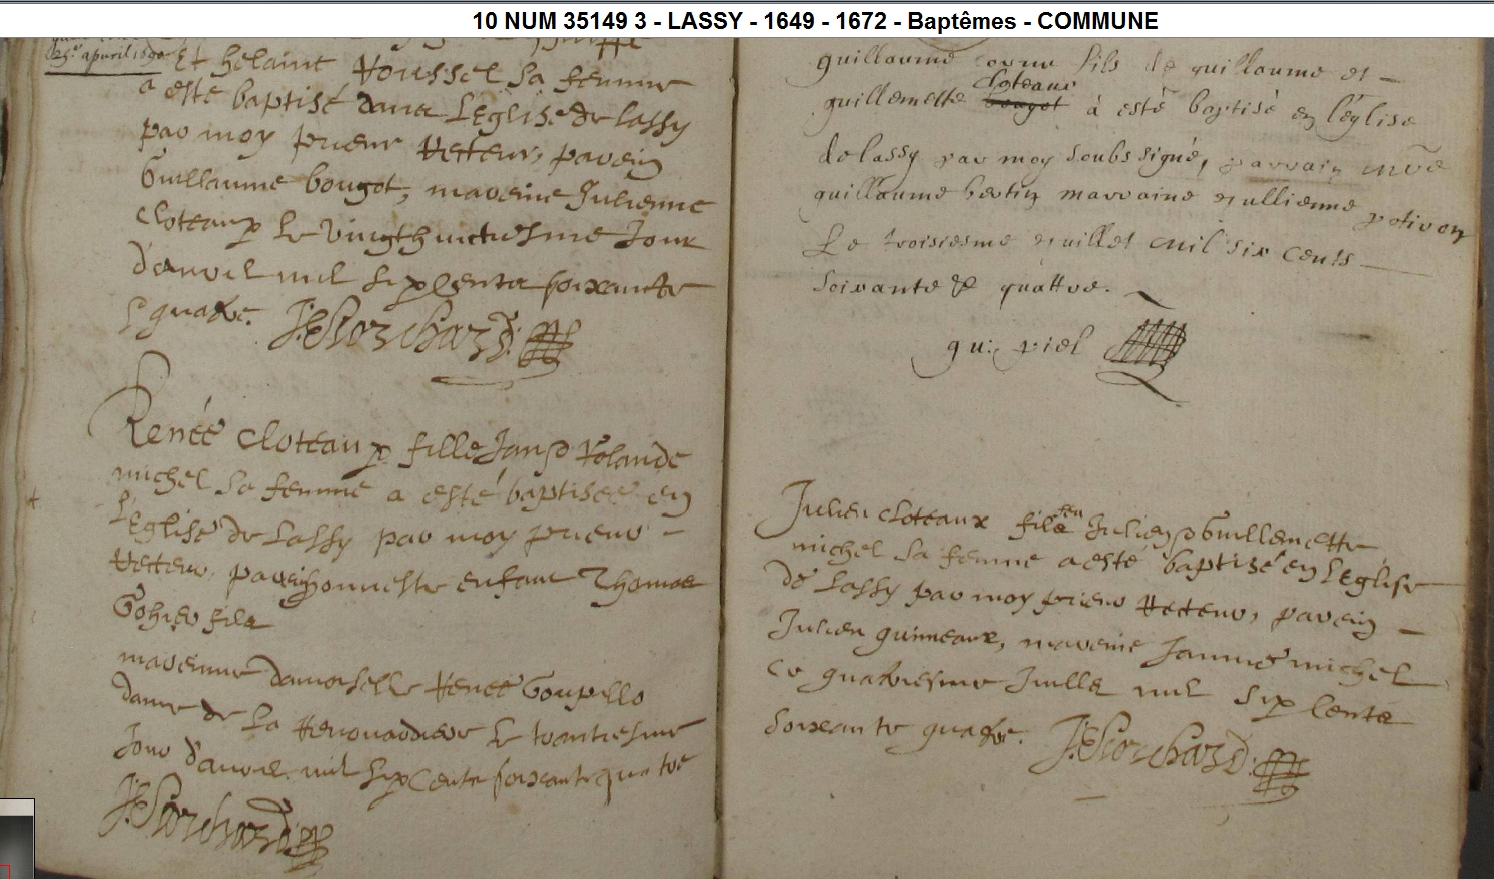 10 NUM 35149 3 - LASSY - 1649 - 1672 - Baptêmes - COMMUNE
apvril
Et helaine Roussel sa femme
a esté baptisé dans L'Eglise de lassy
par moy prieur Recteur, parein
Guillaume bougot, mareine Julienne
Cloteaux le vingthuictiesme Jour
d'avril mil six cents soixante
& quatre. J. Porchard
Renée Cloteaux fille Jan & Rolande
michel sa femme a esté baptisée en
L'Eglise de Lassy par moy prieur
Recteur, parein honneste enfant Thomas
Gohier fils
mareinne damoiselle Renée Goupille
dame de La Renouardiere le trantiesme
Jour d'avril mil six Cents soixante quatre
J. Porchard
guillaume fils de guillaume et
Cloteaux
guillemette bougot à esté baptisé en l'église
de lassy par moy soubs signé, parrain
guillaume bertin marraine jullienne potivon
Le troisiesme juillet mil six cents
soixante & quattre.
gu: piel
Julien Cloteaux fils feu Julien & Guillemette
michel sa femme a esté baptisé en L'Eglise
de Lassy par moy prieur Recteur, parein
Julien guinneaux, mareine Janne michel
ce quatriesme Juillet mil six Cents
soixante quatre. J. Porchard